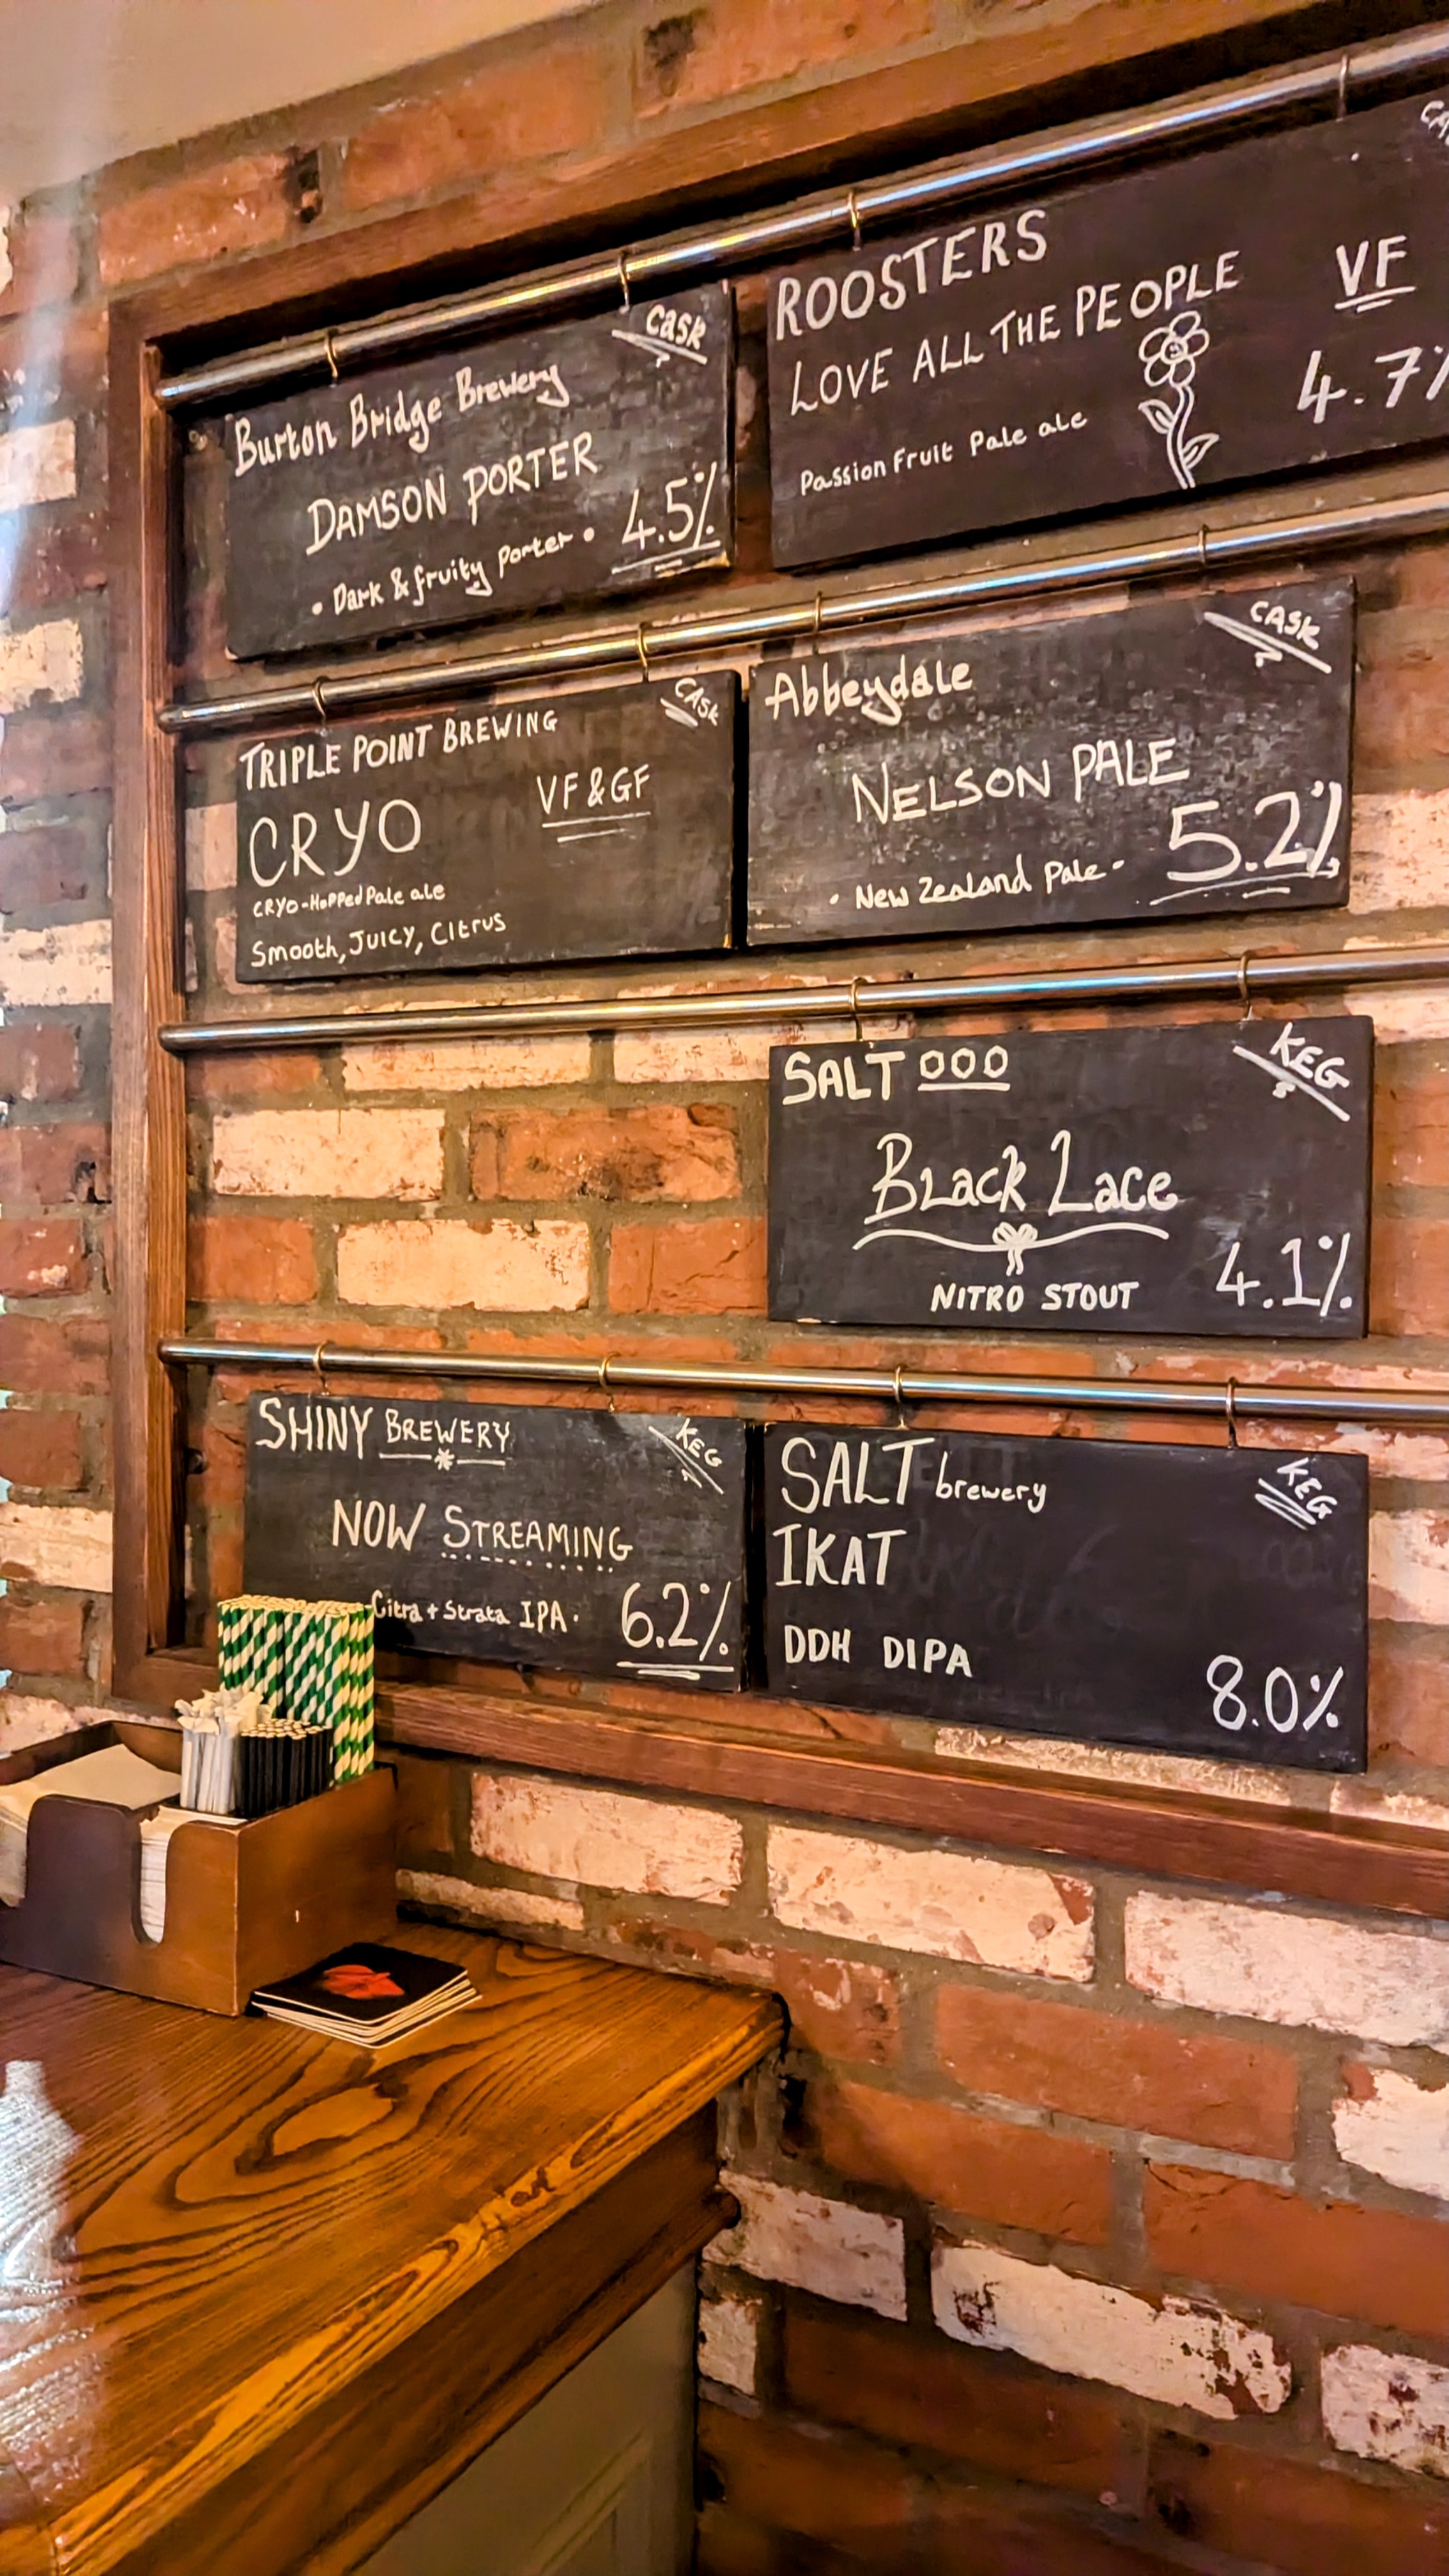 Burton Bridge Brewery
CASK
DAMSON PORTER
• Dark & fruity porter •
4.5%
ROOSTERS
LOVE ALL THE PEOPLE
VF
Passion Fruit Pale ale
4.7%
TRIPLE POINT BREWING
CASK
CRYO
VF & GF
CRYO-HOPPed Pale ale
Smooth, JUICY, CItrus
Abbeydale
CASK
NELSON PALE
• New Zealand Pale -
5.2%
SALT 000
KEG
BLack Lace
NITRO STOUT
4.1%
SHINY BREWERY
KEG
NOW STREAMING
Citra + Strata IPA •
6.2%
SALT brewery
KEG
IKAT
DDH DIPA
8.0%